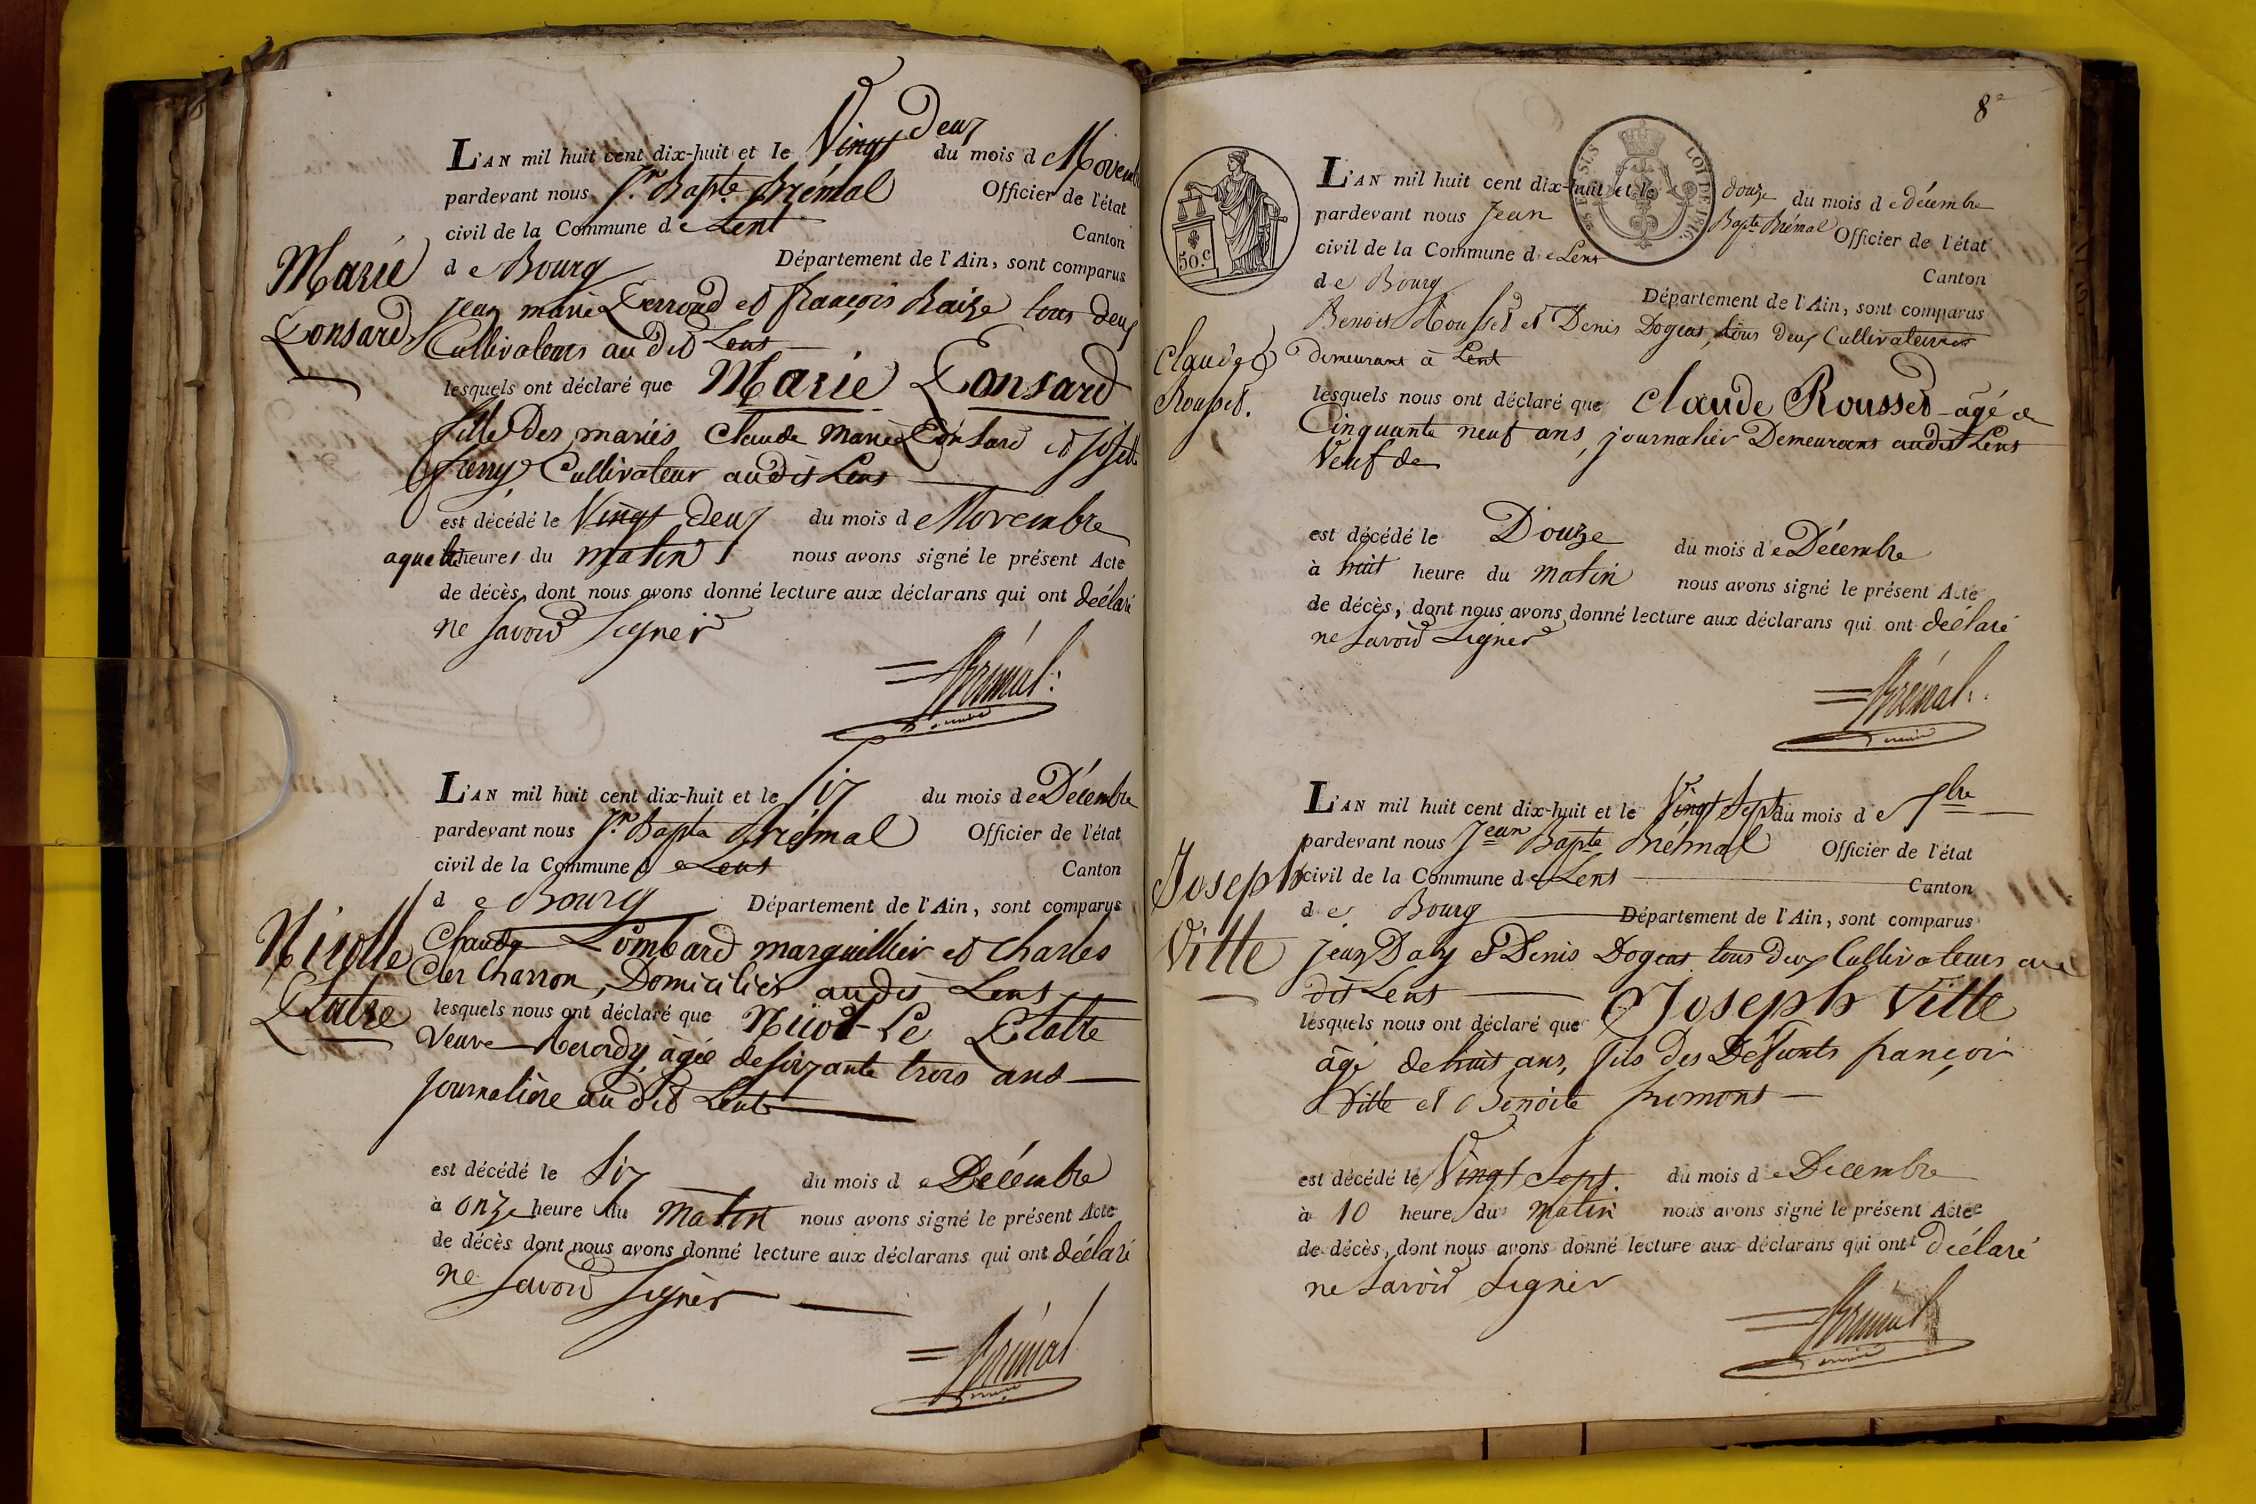 L'AN mil huit cent dix-huit et le Vingt Deux du mois de Novemb
pardevant nous Jn. Bapte. Brémal Officier de l'état
civil de la Commune de Lent Canton
de Bourg Département de l'Ain, sont comparus
Marie
Consard
jean marie Perroud et françois Raize tous deux
Cultivateurs au dit Lent
lesquels ont déclaré que Marie Consard
fille des mariés Claude Marie Consard et Josette
Cultivateur audit Lent
est décédé le Vingt Deux du mois de Novembre
a quatre heures du matin nous avons signé le présent Acte
de décès, dont nous avons donné lecture aux déclarans qui ont déclaré
ne Savoir Signer
Brémal
L'AN mil huit cent dix-huit et le Six du mois de Décembre
pardevant nous Jn Bapte Brémal Officier de l'état
civil de la Commune de Lent Canton
de Bourg Département de l'Ain, sont comparus
Nicolle
Claude Lombard marguillier et Charles
Charron, Domiciliés audit Lent
lesquels nous ont déclaré que
Veuve âgée de soixante trois ans
journalière au dit Lent
est décédé le Six du mois de Décembre
à onze heure du Matin nous avons signé le présent Acte
de décès dont nous avons donné lecture aux déclarans qui ont déclaré
ne Savoir Signer
Brémal
8e
50.c
25 ES SUS LOI DE 1816.
L'AN mil huit cent dix-huit et le douze du mois de décembre
pardevant nous Jean Bapte Brémal Officier de l'état
civil de la Commune de Lent Canton
de Bourg Département de l'Ain, sont comparus
Claude
Rousset.
Benoit Rousset et Denis Dogeas, tous deux Cultivateurs
demeurant à Lent
lesquels nous ont déclaré que Claude Rousset âgé de
Cinquante neuf ans, journalier Demeurant audit Lent
Veuf de
est décédé le Douze du mois de Décembre
à huit heure du Matin nous avons signé le présent Acte
de décès, dont nous avons donné lecture aux déclarans qui ont déclaré
ne Savoir Signer
Brémal
L'AN mil huit cent dix-huit et le Vingt Sept du mois de
pardevant nous Jean Bapte Brémal Officier de l'état
civil de la Commune de Lent Canton
de Bourg Département de l'Ain, sont comparus
Joseph
Vitte
jean Daly et Denis Dogeas tous deux Cultivateurs au
dit Lent
lesquels nous ont déclaré que Joseph Vitte
âgé de huit ans, fils des Défunts françois
Vitte et Benoite fremont
est décédé le Vingt Sept. du mois de Decembre
à 10 heure du Matin nous avons signé le présent Acte
de décès, dont nous avons donné lecture aux déclarans qui ont déclaré
ne Savoir Signer
Brémal